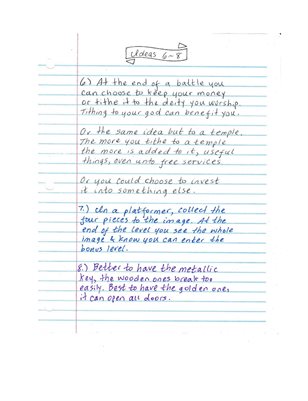 Ideas 6-8
6.) At the end of a battle you
can choose to keep your money
or tithe it to the deity you worship.
Tithing to your god can benefit you.
Or the same idea but to a temple.
The more you tithe to a temple
the more is added to it, useful
things, even unto free services.
Or you could choose to invest
it into something else.
7.) In a platformer, collect the
four pieces to the image. At the
end of the level you see the whole
image & know you can enter the
bonus level.
8.) Better to have the metallic
key, the wooden ones break too
easily. Best to have the golden one,
it can open all doors.